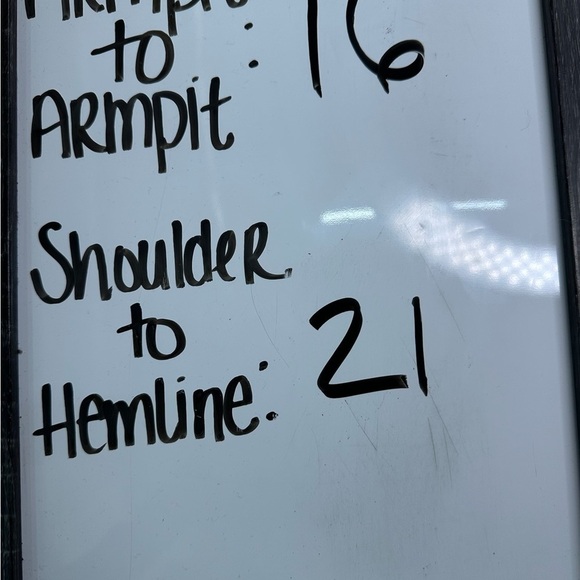 ARMpit
to : 16
ARmpit
ShouldeR
to
Hemline: 21